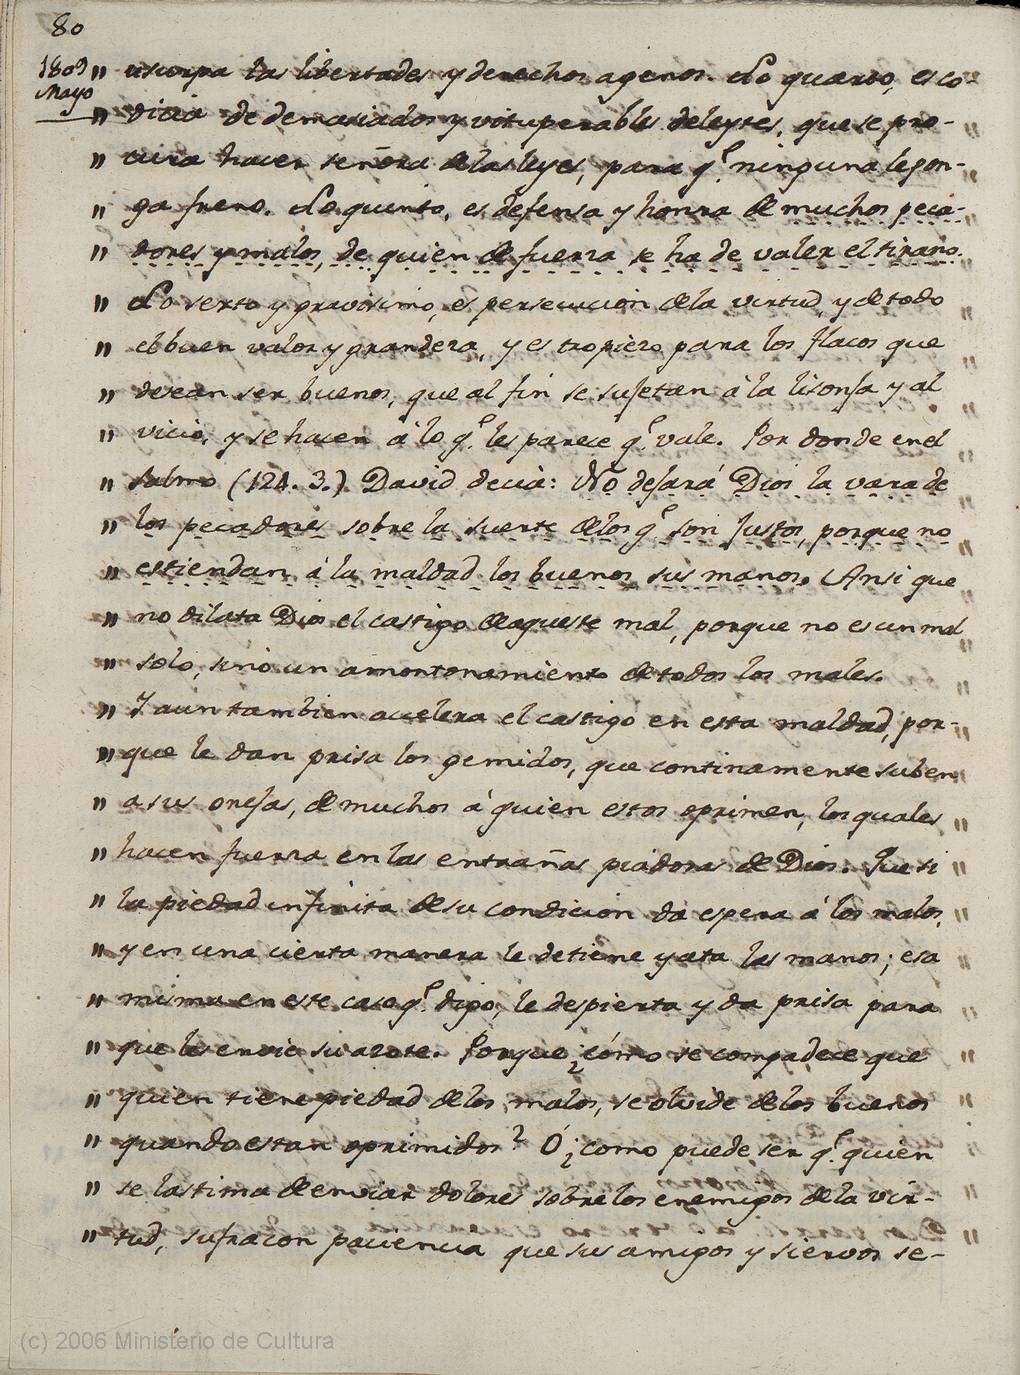 80
1809
Mayo
" usurpa las libertades y derechos agenos. Lo quarto, es co-
" dicia de demasiados y vituperables deleytes, que se pro-
" cura hacer señora de las leyes, para q.e ninguna le pon-
" ga freno. Lo quinto, es defensa y honra de muchos peca-
" dores y malos, de quien de fuerza se ha de valer el tirano.
" Lo sexto y gravisimo, es persecucion de la virtud, y de todo
" el buen valor y grandeza, y es tropiezo para los flacos que
" desean ser buenos, que al fin se sujetan á la lisonja y al
" vicio, y se hacen á lo q.e les parece q.e vale. Por donde en el
" Salmo (124. 3.) David decia: No dejará Dios la vara de
" los pecadores sobre la suerte de los q.e son justos, porque no
" estiendan á la maldad los buenos sus manos. Ansi que
" no dilata Dios el castigo de aqueste mal, porque no es un mal
" solo, sinó un amontonamiento de todos los males.
" Y aun tambien acelera el castigo en esta maldad, por-
" que le dan prisa los gemidos, que continamente suben
" a sus orejas, de muchos á quien estos oprimen, los quales
" hacen fuerza en las entrañas piadosas de Dios. Que si
" la piedad infinita de su condicion da espera á los malos,
" y en una cierta manera le detiene y ata las manos; esa
" misma en este caso q.e digo, le despierta y da prisa para
" que les envie su azote. Porque ¿cómo se compadece que
" quien tiene piedad de los malos, se olvide de los buenos
" quando estan oprimidos? Ó ¿como puede ser q.e quien
" se lastima de enviar dolores sobre los enemigos de la vir-
" tud, sufra con paciencia que sus amigos y siervos se-
(c) 2006 Ministerio de Cultura